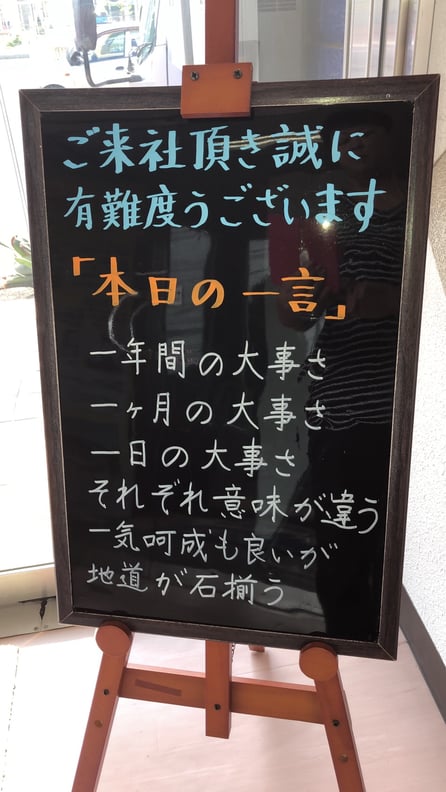 ご来社頂き誠に
有難度うございます
「本日の一言」
一年間の大事さ
一ヶ月の大事さ
一日の大事さ
それぞれ意味が違う
一気呵成も良いが
地道が石揃う